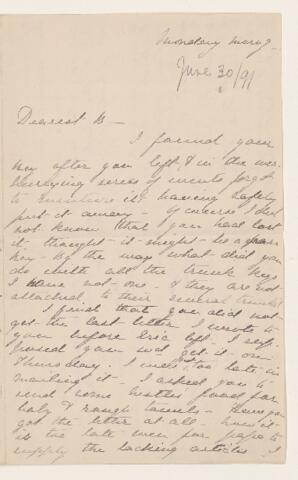 Monday morng.
June 30/91
Dearest B —
I found your
key after you left & in the over
hurrying series of events forgot
to it having safely
put it away — Of course I did
not know that you had lost
it — thought it might be a spare
key — by the way what did you
do with all the trunk keys
I have not one. & they are not
attached to their several trunks
I find that you did not
get the last letter I wrote to
you before Eric left. I sup-
posed you would get it on
Thursday. I was too late in
mailing it — I asked you to
send some bottles food for
baby & rough towels —
got the letter at all — now it
is too late even for papa to
supply the lacking articles. I